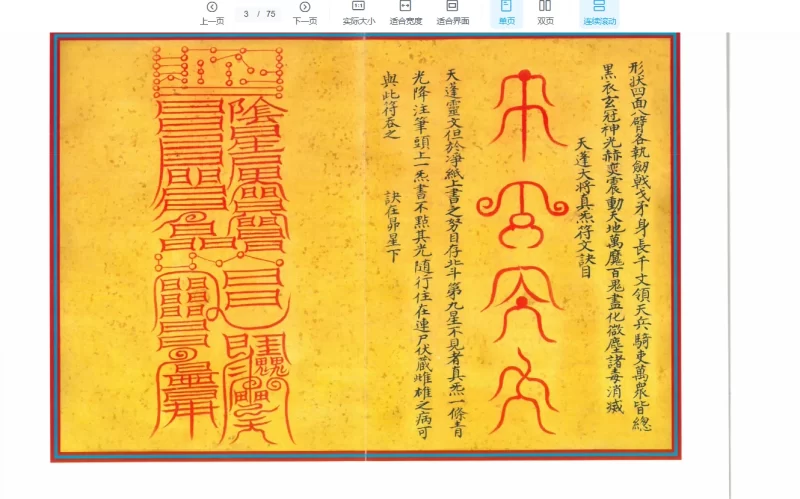 上一页
3 / 75
下一页
1:1
实际大小
适合宽度
适合界面
单页
双页
连续滚动
形狀四面八臂各執劒戟戈矛身長千丈領天兵騎吏萬眾皆總
黑衣玄冠神光赫奕震動天地萬魔百鬼盡化微塵諸毒消滅
天蓬大将真炁符文訣目
天蓬靈文但於凈紙上書之努目存北斗第九星不見者真炁一條青
光降注筆頭上一炁書不點其光隨行住在連尸伏藏雌雄之病可
與此符吞之 訣在昴星下